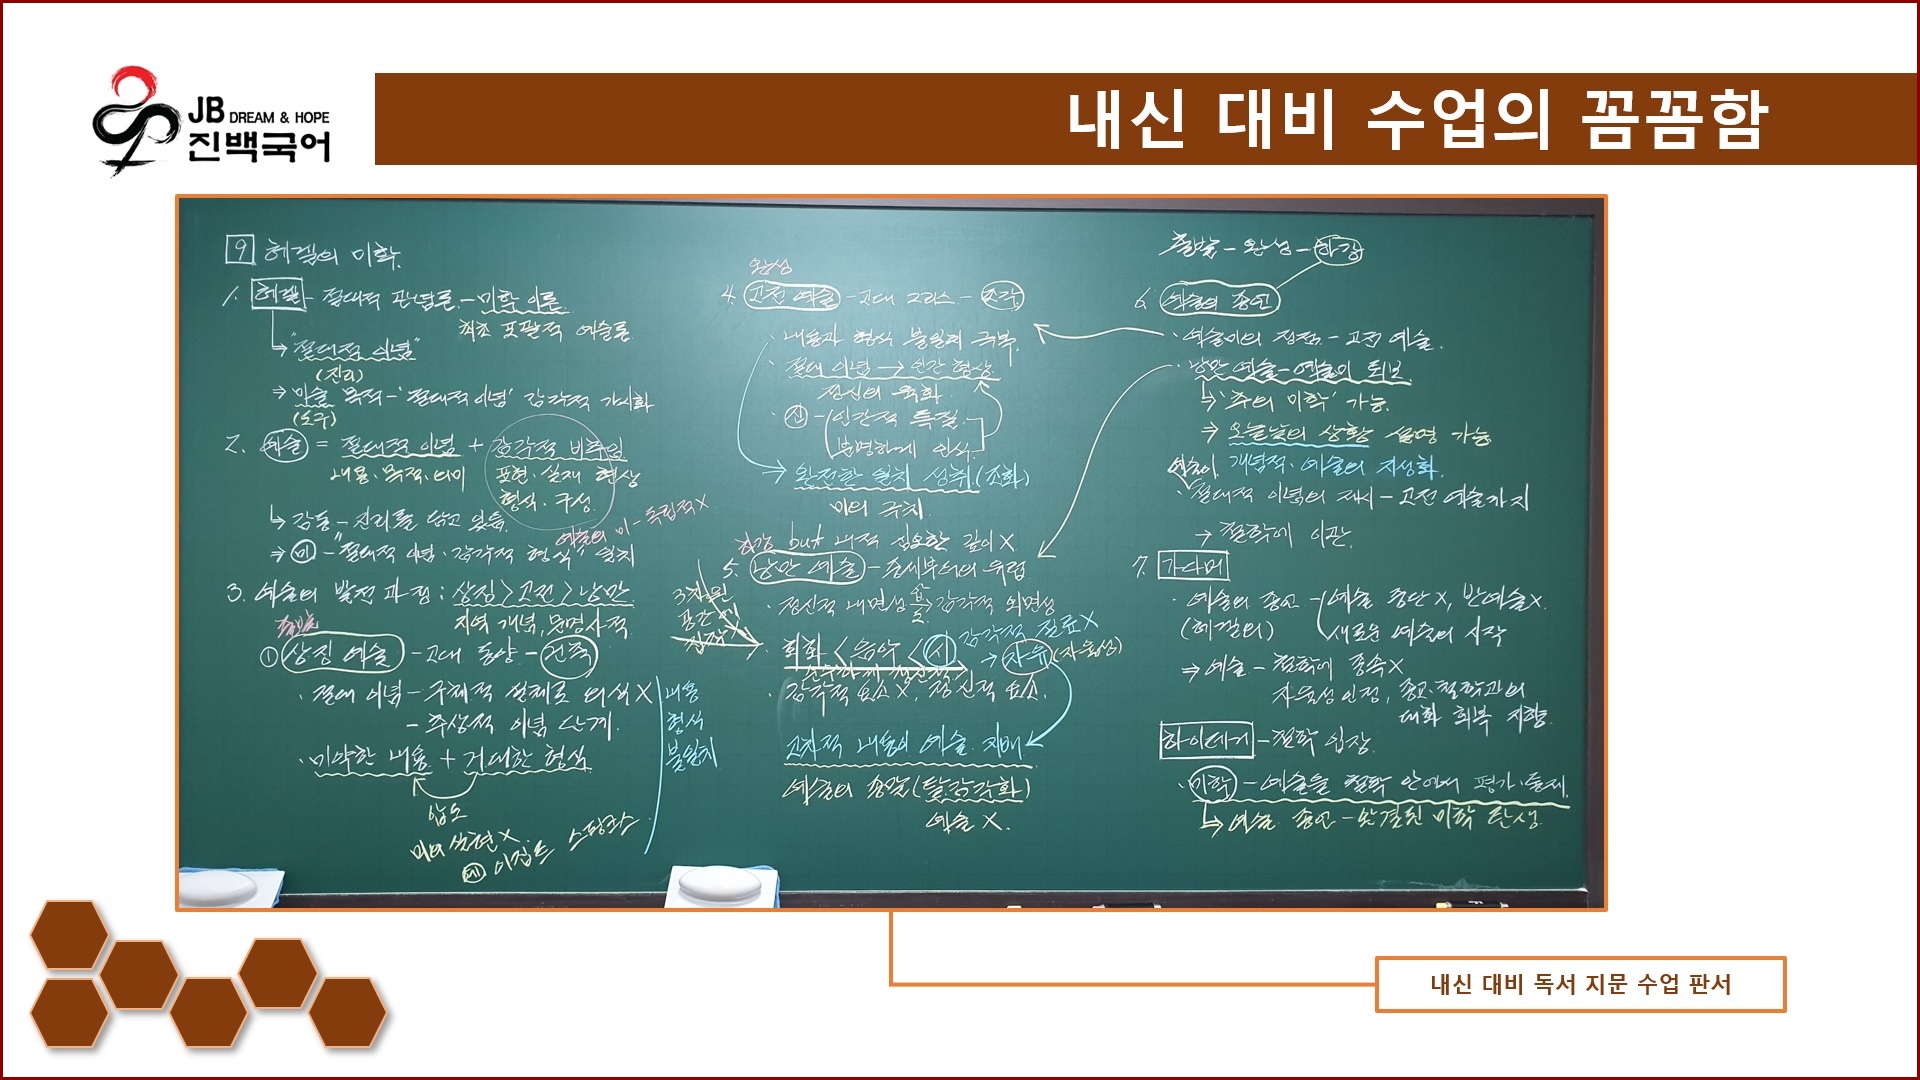 JB DREAM & HOPE
진백국어
내신 대비 수업의 꼼꼼함
9 헤겔의 미학.
1. 헤겔 - 절대적 관념론 - 미학 이론.
최초 포괄적 예술론
→ "절대적 이념"
(진리)
⇒ 미술 목적 - '절대적 이념' 감각적 가시화
(도구)
2. 예술 = 절대적 이념 + 감각적 비추임
내용·목적·의미 표현·실재 현상
형식·구성.
↳ 감동 - 진리를 담고 있음.
예술의 미 - 독립적 X
⇒ 미 - "절대적 이념·감각적 형식" 일치
3. 예술의 발전 과정 : 상징 > 고전 > 낭만.
지역 개념, 문명사적.
출발
① 상징 예술 - 고대 동양 - 건축
· 절대 이념 - 구체적 실체로 의식 X
- 추상적 이념 단계.
· 미약한 내용 + 거대한 형식
압도
미의 실현 X.
예 이집트 스핑크스
내용
형식
불일치
완성
4. 고전 예술 - 고대 그리스 - 조각
· 내용과 형식 불일치 극복.
· 절대 이념 → 인간 형상.
정신의 육화.
· 신 - 인간적 특질.
분명하게 인식.
→ 완전한 일치 성취 (조화)
미의 극치.
하강 but 내적 심오한 깊이 X
5. 낭만 예술 - 중세부터의 유럽
3차원
공간의
· 정신적 내면성 > 감각적 외면성
회화 < 음악 < 시 감각적 질료 X
→ 자유 (자율성)
· 감각적 요소 X, 정신적 요소.
고차적 내용이 예술 지배
예술의 종말 (탈감각화)
예술 X.
출발 - 완성 - 하강
6. 예술의 종언
· 예술미의 정점 - 고전 예술.
· 낭만 예술 - 예술의 퇴보
↳ '추의 미학' 가능.
⇒ 오늘날의 상황 설명 가능
예술이 개념적·예술의 지성화.
· 절대적 이념의 제시 - 고전 예술까지
→ 철학에 이관.
7. 가다머
· 예술의 종언 - 예술 중단 X, 반예술 X.
(헤겔의) 새로운 예술의 시작
⇒ 예술 - 철학에 종속 X
자율성 인정, 종교·철학과의
대화 회복 지향.
하이데거 - 철학 입장.
· 미학 - 예술을 철학 안에서 평가·통제.
↳ 예술 종언 - 완결된 미학 탄생.
내신 대비 독서 지문 수업 판서